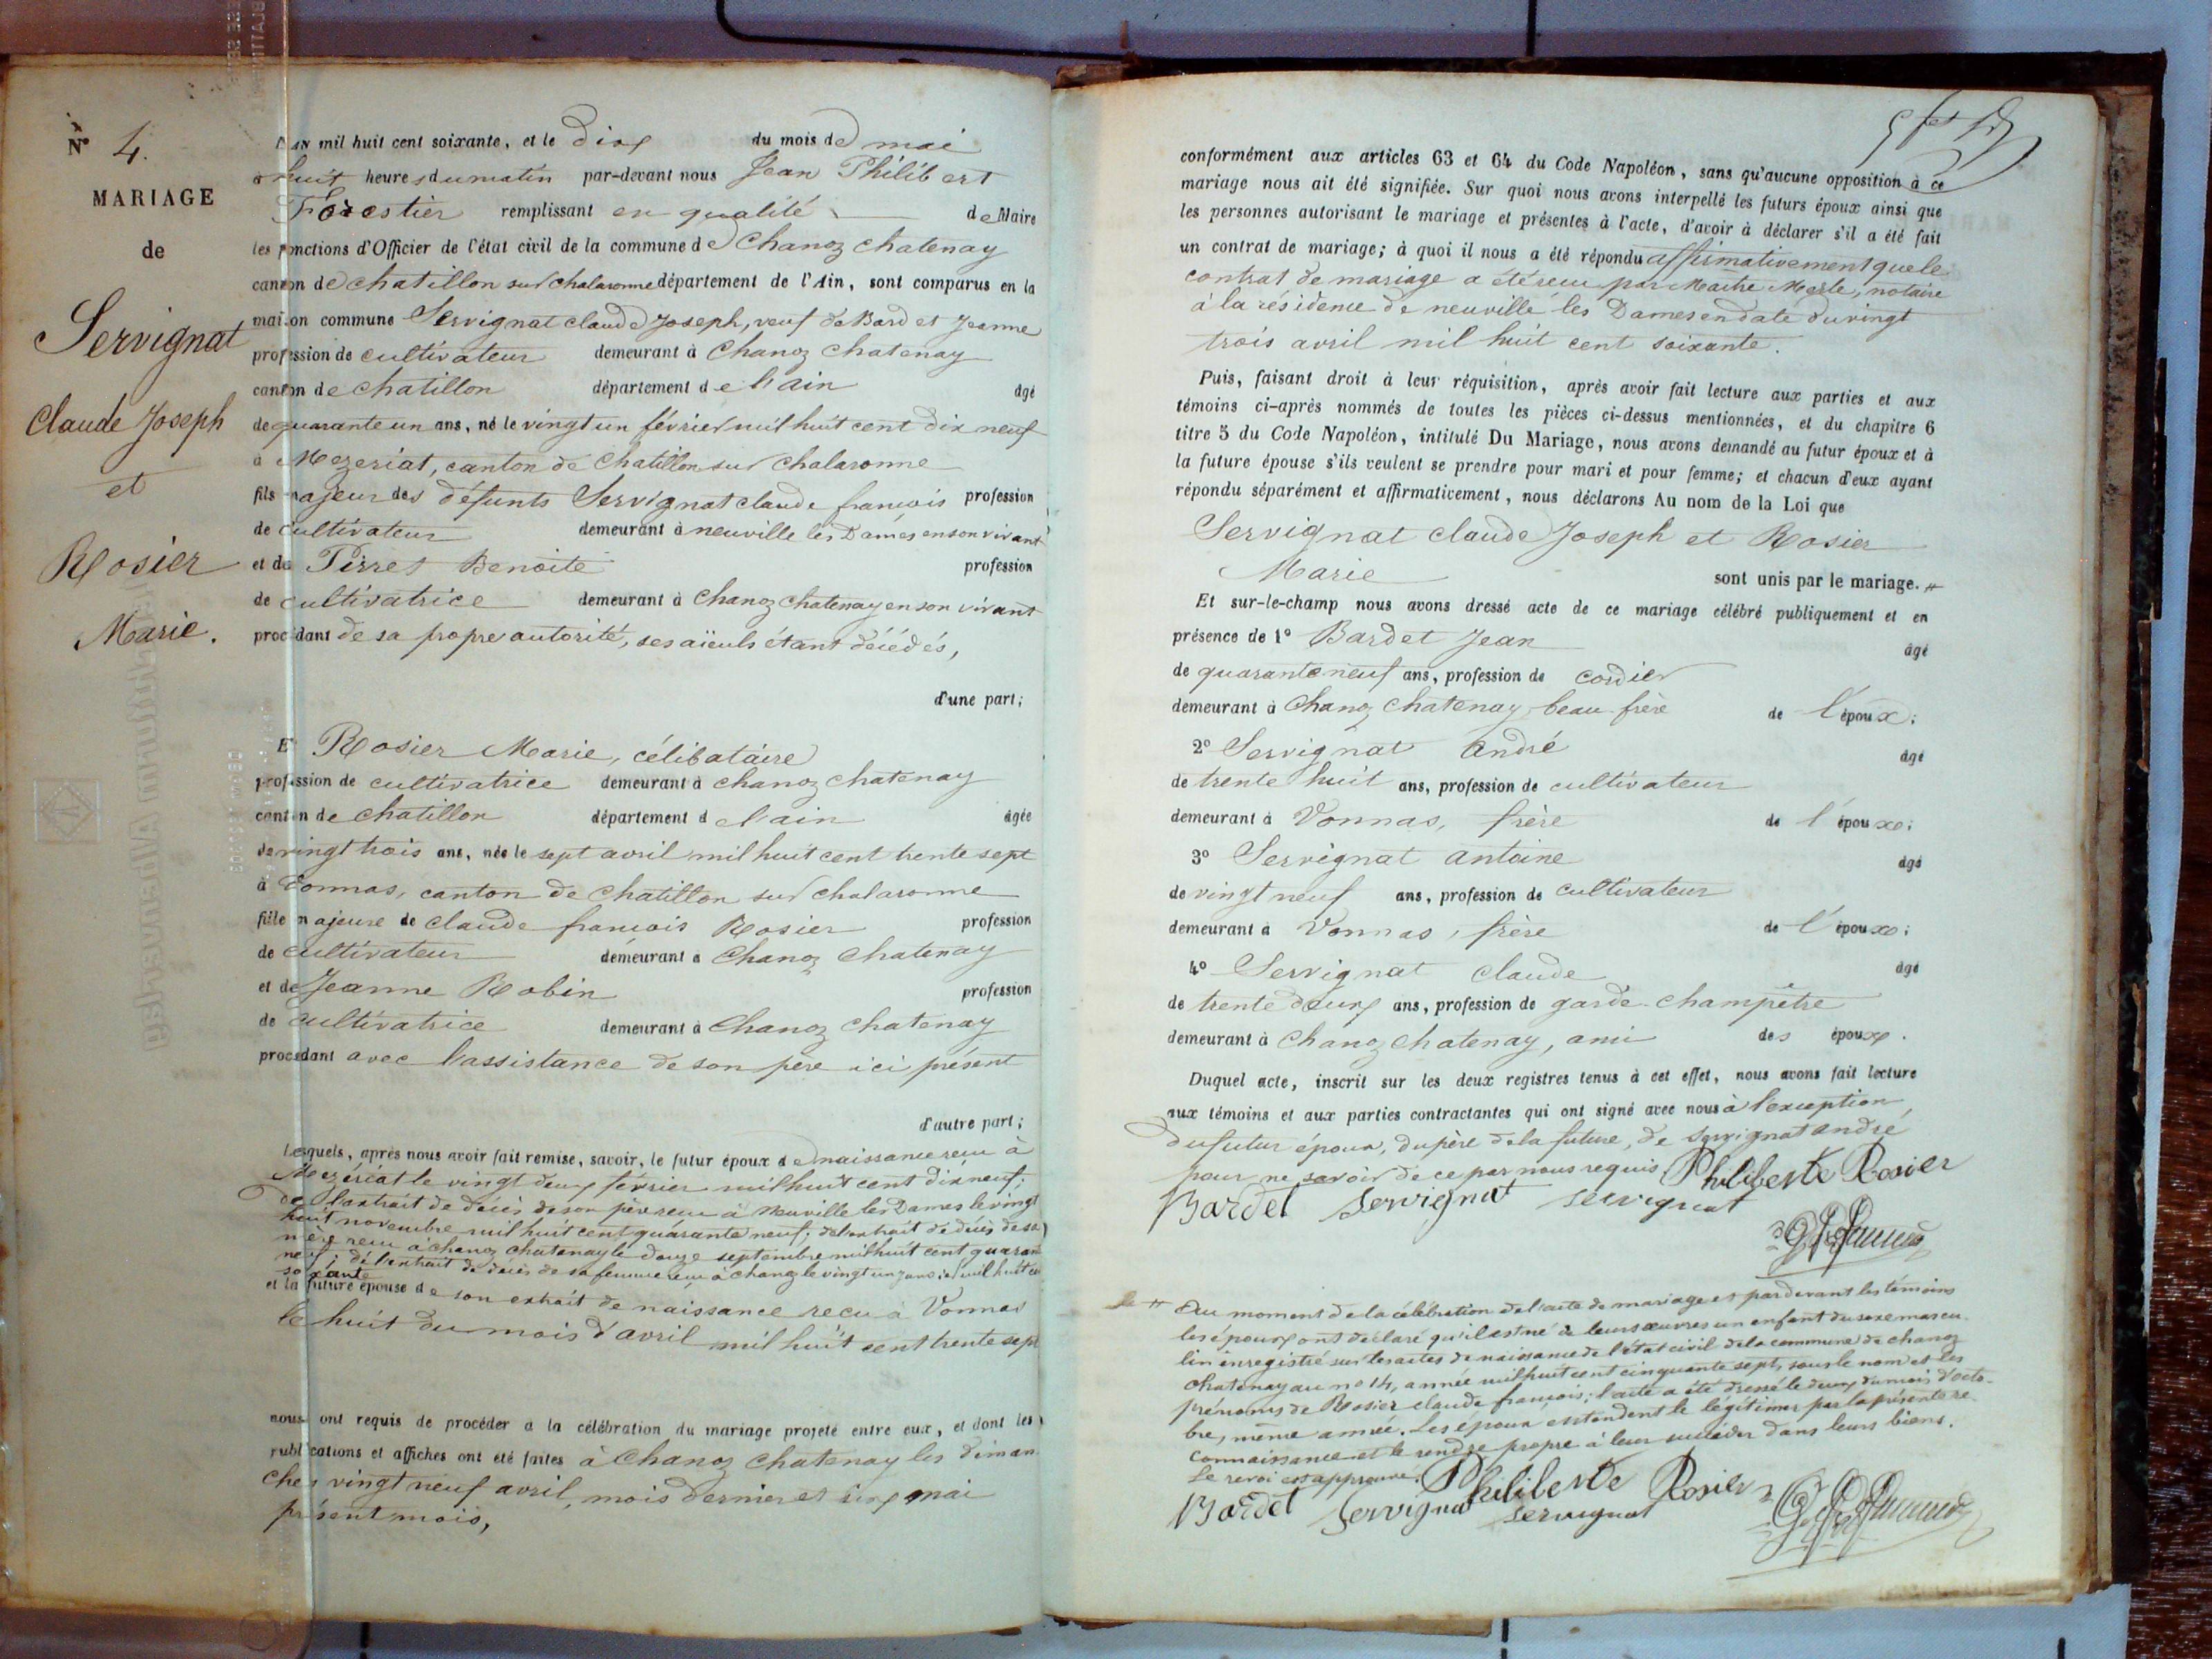 N° 4.
MARIAGE
de
Servignat
Claude Joseph
et
Rosier
Marie.
L'AN mil huit cent soixante, et le dix du mois de mai
à huit heures du matin par-devant nous Jean Philibert
Forestier remplissant en qualité de Maire
les fonctions d'Officier de l'état civil de la commune de Chanoz chatenay
canton de chatillon sur chalaronne département de l'Ain, sont comparus en la
maison commune Servignat claude Joseph, veuf de Bardet Jeanne
profession de cultivateur demeurant à Chanoz chatenay
canton de chatillon département de l'ain âgé
de quarante un ans, né le vingt un février mil huit cent dix neuf
à Mezeriat, canton de Chatillon sur Chalaronne
fils majeur des défunts Servignat claude francois profession
de cultivateur demeurant à neuville les Dames en son vivant
et de Pirret Benoite profession
de cultivatrice demeurant à Chanoz chatenay en son vivant
procédant de sa propre autorité, ses aïeuls étant décédés,
d'une part;
Et Rosier Marie, célibataire
profession de cultivatrice demeurant à chanoz chatenay
canton de chatillon département de l'ain âgée
de vingt trois ans, née le sept avril mil huit cent trente sept
à Vonnas, canton de Chatillon sur chalaronne
fille majeure de claude francois Rosier profession
de cultivateur demeurant à Chanoz Chatenay
et de Jeanne Robin profession
de cultivatrice demeurant à Chanoz chatenay
procédant avec l'assistance de son père ici présent
d'autre part;
Lesquels, après nous avoir fait remise, savoir, le futur époux de naissance reçu à
Mezériat le vingt deux février mil huit cent dix neuf;
de l'extrait de décès de son père reçu à Neuville les Dames le vingt
huit novembre mil huit cent quarante neuf; de l'extrait de décès de sa
mère reçu à chanoz chatenay le douze septembre mil huit cent quarante
neuf; de l'extrait de décès de sa femme reçu à chanoz le vingt un janvier mil huit cent
soixante
et la future épouse de son extrait de naissance reçu à Vonnas
le huit du mois d'avril mil huit cent trente sept
nous ont requis de procéder à la célébration du mariage projeté entre eux, et dont les
publications et affiches ont été faites à Chanoz Chatenay les diman
ches vingt neuf avril, mois dernier et six mai
présent mois,
conformément aux articles 63 et 64 du Code Napoléon, sans qu'aucune opposition à ce
mariage nous ait été signifiée. Sur quoi nous avons interpellé les futurs époux ainsi que
les personnes autorisant le mariage et présentes à l'acte, d'avoir à déclarer s'il a été fait
un contrat de mariage; à quoi il nous a été répondu affirmativement que le
contrat de mariage a été reçu par Maître Merle, notaire
à la résidence de neuville les Dames en date du vingt
trois avril mil huit cent soixante.
Puis, faisant droit à leur réquisition, après avoir fait lecture aux parties et aux
témoins ci-après nommés de toutes les pièces ci-dessus mentionnées, et du chapitre 6
titre 5 du Code Napoléon, intitulé Du Mariage, nous avons demandé au futur époux et à
la future épouse s'ils veulent se prendre pour mari et pour femme; et chacun d'eux ayant
répondu séparément et affirmativement, nous déclarons Au nom de la Loi que
Servignat claude Joseph et Rosier
Marie sont unis par le mariage. #
Et sur-le-champ nous avons dressé acte de ce mariage célébré publiquement et en
présence de 1° Bardet Jean âgé
de quarante neuf ans, profession de cordier
demeurant à Chanoz Chatenay beau frère de l'époux;
2° Servignat André âgé
de trente huit ans, profession de cultivateur
demeurant à Vonnas, frère de l'époux;
3° Servignat antoine âgé
de vingt neuf ans, profession de cultivateur
demeurant à Vonnas, frère de l'époux;
4° Servignat claude âgé
de trente deux ans, profession de garde-champêtre
demeurant à Chanoz chatenay, ami des époux.
Duquel acte, inscrit sur les deux registres tenus à cet effet, nous avons fait lecture
aux témoins et aux parties contractantes qui ont signé avec nous à l'exception
du futur époux, du père de la future, de Servignat andré
pour ne savoir de ce par nous requis Philiberte Rosier
Bardet Servignat servignat
# Au moment de la célébration de l'acte de mariage et pardevant les témoins
les époux ont déclaré qu'il est né de leurs œuvres un enfant du sexe mascu
lin enregistré sur les actes de naissance de l'état civil de la commune de chanoz
chatenay au no 14, année mil huit cent cinquante sept, sous le nom et les
prénoms de Rosier claude françois; l'acte a été dressé le deux du mois d'octo-
bre, même année. Les époux entendent le légitimer par la présente re
connaissance et le rendre propre à leur succéder dans leurs biens.
Le renvoi est approuvé. Philiberte Rosier
Bardet Servignat servignat